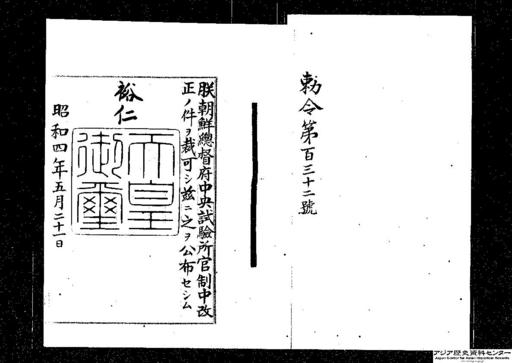 勅令第百三十二號
朕朝鮮總督府中央試驗所官制中改
正ノ件ヲ裁可シ茲ニ之ヲ公布セシム
裕仁
天皇
御璽
昭和四年五月二十一日
アジア歴史資料センター
Japan Center for Asian Historical Records